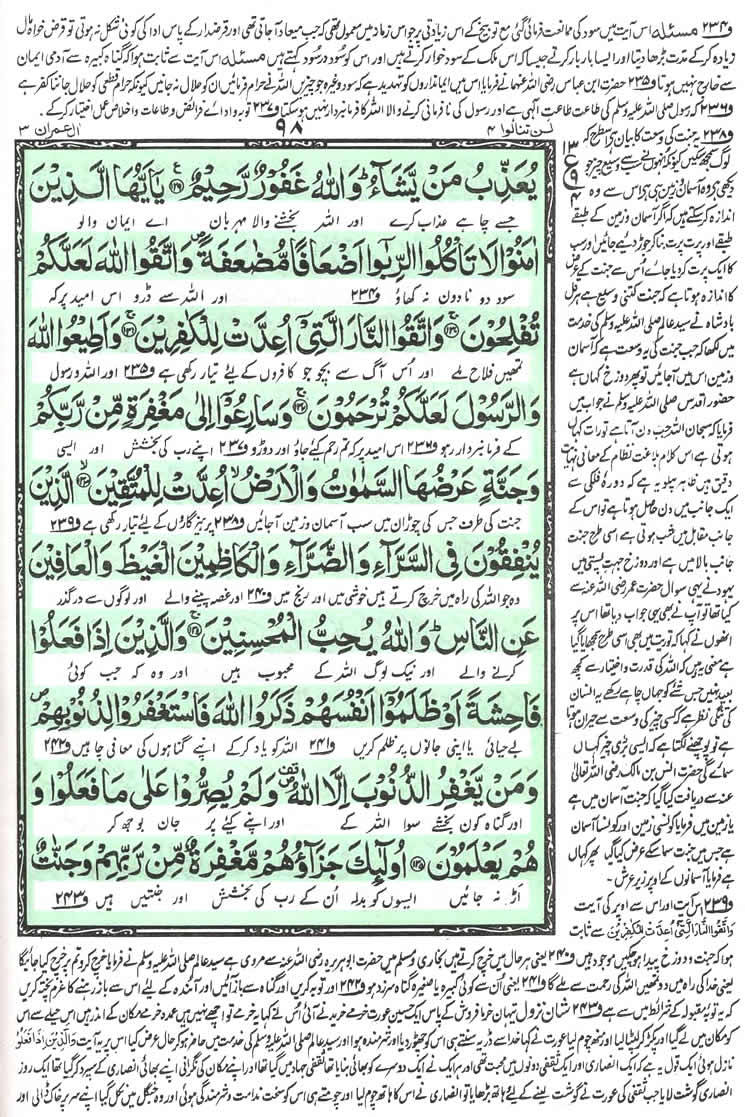 و۲۳۴ مسئلہ اس آیت میں سود کی ممانعت فرمائی گئی مع توبیخ کے اس زیادتی پر جو اس زمانہ میں معمول تھی کہ جب میعاد آجاتی تھی اور قرضدار کے پاس ادا کی کوئی شکل نہ ہوتی تو قرض خواہ مال
زیادہ کرکے مدت بڑھا دیتا اور ایسا بار بار کرتے جیسا کہ اس ملک کے سود خوار کرتے ہیں اور اس کو سود در سود کہتے ہیں مسئلہ اس آیت سے ثابت ہوا کہ گناہ کبیرہ سے آدمی ایمان
سے خارج نہیں ہوتا و۲۳۵ حضرت ابن عباس رضی اللہ عنہما نے فرمایا اس میں ایمانداروں کو تہدید ہے کہ سود وغیرہ جو چیزیں اللہ نے حرام فرمائیں ان کو حلال نہ جانیں کیونکہ حرام قطعی کو حلال جاننا کفر ہے
و۲۳۶ کہ رسول صلی اللہ علیہ وسلم کی طاعت طاعت الٰہی ہے اور رسول کی نافرمانی کرنے والا اللہ کا فرمانبردار نہیں ہوسکتا و۲۳۷ توبہ و ادائے فرائض و طاعات و اخلاص عمل اختیار کرکے۔
لن تنالوا ۴
۹۸
اٰل عمران ۳
يُعَذِّبُ مَنْ يَّشَآءُ ؕ وَاللّٰهُ غَفُوْرٌ رَّحِيْمٌ ۝ يٰۤاَيُّهَا الَّذِيْنَ
جسے چاہے عذاب کرے اور اللہ بخشنے والا مہربان اے ایمان والو
اٰمَنُوْا لَا تَاْكُلُوا الرِّبٰۤوا اَضْعَافًا مُّضٰعَفَةً ۪ وَّاتَّقُوا اللّٰهَ لَعَلَّكُمْ
سود دونا دون نہ کھاؤ و۲۳۴ اور اللہ سے ڈرو اس امید پر کہ
تُفْلِحُوْنَ ۝ وَاتَّقُوا النَّارَ الَّتِيْۤ اُعِدَّتْ لِلْكٰفِرِيْنَ ۝ وَاَطِيْعُوا اللّٰهَ
تمھیں فلاح ملے اور اُس آگ سے بچو جو کافروں کے لیے تیار رکھی ہے و۲۳۵ اور اللہ و رسول
وَالرَّسُوْلَ لَعَلَّكُمْ تُرْحَمُوْنَ ۝ وَسَارِعُوْۤا اِلٰى مَغْفِرَةٍ مِّنْ رَّبِّكُمْ
کے فرمانبردار رہو و۲۳۶ اس امید پر کہ تم رحم کیے جاؤ اور دوڑو و۲۳۷ اپنے رب کی بخشش اور ایسی
وَجَنَّةٍ عَرْضُهَا السَّمٰوٰتُ وَالْاَرْضُ ۙ اُعِدَّتْ لِلْمُتَّقِيْنَ ۝ الَّذِيْنَ
جنت کی طرف جس کی چوڑان میں سب آسمان و زمین آجائیں و۲۳۸ پرہیزگاروں کے لیے تیار رکھی ہے و۲۳۹
يُنْفِقُوْنَ فِي السَّرَّآءِ وَالضَّرَّآءِ وَالْكٰظِمِيْنَ الْغَيْظَ وَالْعَافِيْنَ
وہ جو اللہ کی راہ میں خرچ کرتے ہیں خوشی میں اور رنج میں و۲۴۰ اور غصہ پینے والے اور لوگوں سے درگذر
عَنِ النَّاسِ ؕ وَاللّٰهُ يُحِبُّ الْمُحْسِنِيْنَ ۝ وَالَّذِيْنَ اِذَا فَعَلُوْا
کرنے والے اور نیک لوگ اللہ کے محبوب ہیں اور وہ کہ جب کوئی
فَاحِشَةً اَوْ ظَلَمُوْۤا اَنْفُسَهُمْ ذَكَرُوا اللّٰهَ فَاسْتَغْفَرُوْا لِذُنُوْبِهِمْ ۪
بے حیائی یا اپنی جانوں پر ظلم کریں و۲۴۱ اللہ کو یاد کرکے اپنے گناہوں کی معافی چاہیں و۲۴۲
وَمَنْ يَّغْفِرُ الذُّنُوْبَ اِلَّا اللّٰهُ ۪ وَلَمْ يُصِرُّوْا عَلٰى مَا فَعَلُوْا وَ
اور گناہ کون بخشے سوا اللہ کے اور اپنے کیے پر جان بوجھ کر
هُمْ يَعْلَمُوْنَ ۝ اُولٰٓئِكَ جَزَآؤُهُمْ مَّغْفِرَةٌ مِّنْ رَّبِّهِمْ وَجَنّٰتٌ
اڑ نہ جائیں ایسوں کو بدلہ اُن کے رب کی بخشش اور جنتیں ہیں و۲۴۳
و۲۳۸ جنت کی وسعت کا بیان اس طرح کہ
لوگ سمجھ سکیں کیونکہ انہوں نے سب سے وسیع چیز جو
دیکھی وہ آسمان و زمین ہی ہے اس سے وہ
اندازہ کرسکتے ہیں کہ اگر آسمان و زمین کے طبقے
طبقے اور پرت پرت بنا کر جوڑ دیے جائیں اور سب
کا ایک پرت کردیا جائے اس سے جنت کے عرض
کا اندازہ ہوتا ہے کہ جنت کتنی وسیع ہے ہرقل
بادشاہ نے سید عالم صلی اللہ علیہ وسلم کی خدمت
میں لکھا کہ جب جنت کی یہ وسعت ہے کہ آسمان
و زمین اس میں آجائیں تو پھر دوزخ کہاں ہے
حضور اقدس صلی اللہ علیہ وسلم نے جواب میں
فرمایا کہ سبحان اللہ جب دن آتا ہے تو رات کہاں
ہوتی ہے اس کلام بلاغت نظام کے معانی نہایت
دقیق ہیں ظاہر پہلو یہ ہے کہ دورہ فلکی سے
ایک جانب میں دن حاصل ہوتا ہے تو اس کے
جانب مقابل میں شب ہوتی ہے اسی طرح جنت
جانب بالا میں ہے اور دوزخ جہت پستی میں
یہود نے یہی سوال حضرت عمر رضی اللہ عنہ سے
کیا تھا تو آپ نے بھی یہی جواب دیا تھا اس پر
انھوں نے کہا کہ توریت میں بھی اسی طرح سمجھایا گیا
ہے معنی یہ ہیں کہ اللہ کی قدرت و اختیار سے کچھ
بعید نہیں جس شے کو جہاں چاہے رکھے یہ انسان
کی تنگی نظر ہے کہ کسی چیز کی وسعت سے حیران ہوتا
ہے تو پوچھنے لگتا ہے کہ ایسی بڑی چیز کہاں
سمائے گی حضرت انس بن مالک رضی اللہ تعالیٰ
عنہ سے دریافت کیا گیا کہ جنت آسمان میں ہے
یا زمین میں فرمایا کونسی زمین اور کونسا آسمان
ہے جس میں جنت سما سکے عرض کیا گیا پھر کہاں
ہے فرمایا آسمانوں کے اوپر زیر عرش۔
و۲۳۹ اس آیت اور اس سے اوپر کی آیت
وَاتَّقُوا النَّارَ الَّتِيْ اُعِدَّتْ لِلْكٰفِرِيْنَ سے ثابت
ہوا کہ جنت دوزخ پیدا ہوچکیں موجود ہیں و۲۴۰ یعنی ہر حال میں خرچ کرتے ہیں بخاری و مسلم میں حضرت ابوہریرہ رضی اللہ عنہ سے مروی ہے سید عالم صلی اللہ علیہ وسلم نے فرمایا خرچ کرو تم پر خرچ کیا جائیگا
یعنی خدا کی راہ میں دو تمہیں اللہ کی رحمت سے ملے گا و۲۴۱ یعنی اُن سے کوئی کبیرہ یا صغیرہ گناہ سرزد ہو و۲۴۲ اور توبہ کریں اور گناہ سے باز آئیں اور آئندہ کے لیے اس سے باز رہنے کا عزم پختہ کریں
کہ یہ توبہ مقبولہ کے شرائط میں سے ہے و۲۴۳ شان نزول تیہان خرما فروش کے پاس ایک حسین عورت خرمے خریدنے آئی اُس نے کہا یہ خرمے تو اچھے نہیں ہیں عمدہ خرمے مکان کے اندر ہیں اس حیلے سے اس
کو مکان میں لے گیا اور پکڑ کر لپٹا لیا اور منھ چوم لیا عورت نے کہا خدا سے ڈر یہ سنتے ہی اس کو چھوڑ دیا اور شرمندہ ہوا اور سید عالم صلی اللہ علیہ وسلم کی خدمت میں حاضر ہوکر حال عرض کیا اس پر یہ آیت وَالَّذِيْنَ اِذَا فَعَلُوْا
نازل ہوئی ایک قول یہ ہے کہ ایک انصاری اور ایک ثقفی دونوں میں محبت تھی اور ہر ایک نے ایک دوسرے کو بھائی بنایا تھا ثقفی جہاد میں گیا تھا اور اپنے مکان کی نگرانی اپنے بھائی انصاری کے سپرد کر گیا تھا ایک روز
انصاری گوشت لایا جب ثقفی کی عورت نے گوشت لینے کے لیے ہاتھ بڑھایا تو انصاری نے اس کا ہاتھ چوم لیا اور چومتے ہی اس کو سخت ندامت و شرمندگی ہوئی اور وہ جنگل میں نکل گیا اپنے سر پر خاک ڈالی اور